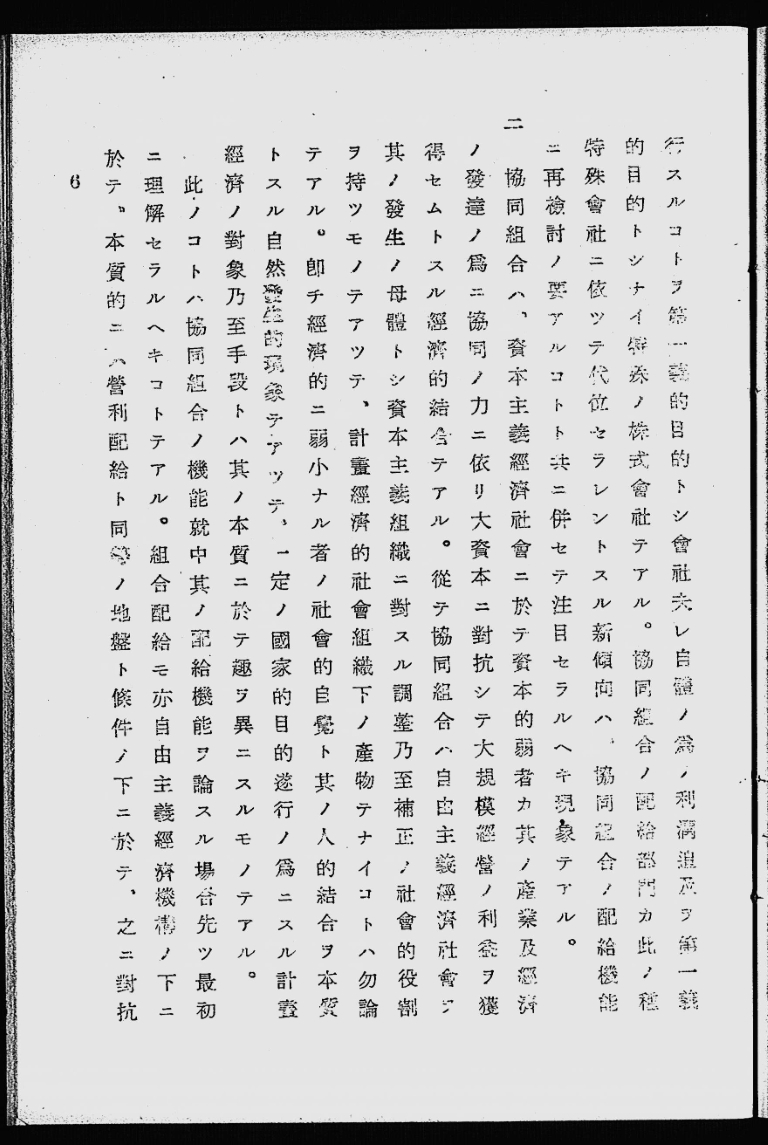 行スルコトヲ第一義的目的トシ會社夫レ自體ノ爲ノ利潤追及ヲ第一義
的目的トシナイ特殊ノ株式會社テアル。協同組合ノ配給部門カ此ノ種
特殊會社ニ依ツテ代位セラレントスル新傾向ハ、協同組合ノ配給機能
ニ再檢討ノ要アルコトト共ニ併セテ注目セラルヘキ現象テアル。
二
協同組合ハ、資本主義經濟社會ニ於テ資本的弱者カ其ノ產業及經濟
ノ發達ノ爲ニ協同ノ力ニ依リ大資本ニ對抗シテ大規模經營ノ利益ヲ獲
得セムトスル經濟的結合テアル。從テ協同組合ハ自由主義經濟社會ヲ
其ノ發生ノ母體トシ資本主義組織ニ對スル調整乃至補正ノ社會的役割
ヲ持ツモノテアツテ、計畫經濟的社會組織下ノ產物テナイコトハ勿論
テアル。卽チ經濟的ニ弱小ナル者ノ社會的自覺ト其ノ人的結合ヲ本質
トスル自然發生的現象テアツテ、一定ノ國家的目的遂行ノ爲ニスル計畫
經濟ノ對象乃至手段トハ其ノ本質ニ於テ趣ヲ異ニスルモノテアル。
此ノコトハ協同組合ノ機能就中其ノ配給機能ヲ論スル場合先ツ最初
ニ理解セラルヘキコトテアル。組合配給モ亦自由主義經濟機構ノ下ニ
於テ、本質的ニハ營利配給ト同等ノ地盤ト條件ノ下ニ於テ、之ニ對抗
6